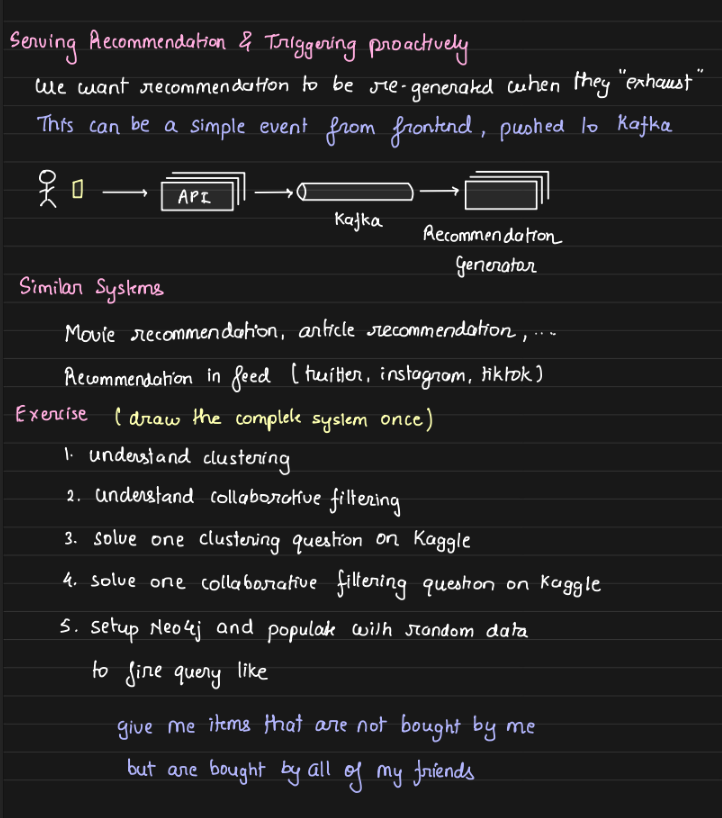 Serving Recommendation & Triggering proactively
We want recommendation to be re-generated when they "exhaust"
This can be a simple event from frontend, pushed to Kafka
API
Kafka
Recommendation
Generator
Similar Systems
Movie recommendation, article recommendation, ...
Recommendation in feed (twitter, instagram, tiktok)
Exercise (draw the complete system once)
1. understand clustering
2. understand collaborative filtering
3. solve one clustering question on Kaggle
4. solve one collaborative filtering question on Kaggle
5. setup Neo4j and populate with random data
to fire query like
give me items that are not bought by me
but are bought by all of my friends